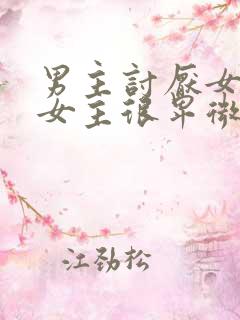 男主討厭女
女主很卑微
江劲松